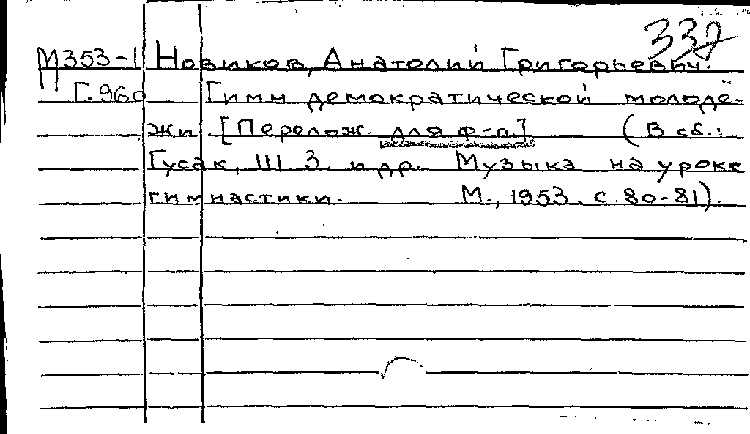 М353-1 Новиков, Анатолий Григорьевич.
Г.960 Гимн демократической молодё-
жи. [Перелож. для ф-п.] (В сб.:
Гусак, Ш. З. и др. Музыка на уроке
гимнастики. М., 1953. с. 80-81).